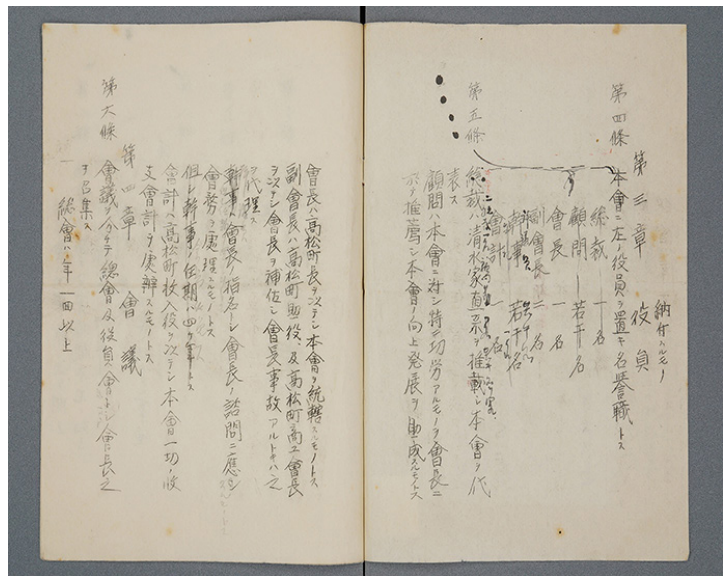 納付スルモノ
第三章 役員
第四條 本會ニ左ノ役員ヲ置キ名譽職トス
総裁 一名
顧問 若干名
會長 一名
副會長 二名
幹事 若干名
會計 一名
第五條 総裁ハ清水家直系ヲ推載シ本會ヲ代
表ス
顧問ハ本會ニ対シ特ニ功労アルモノヲ會長ニ
於テ推薦シ本會ノ向上発展ヲ助成スルモノトス
會長ハ高松町長ヲ以テシ本會ヲ統轄スルモノトス
副會長ハ高松町助役、及高松町商工會長
ヲ以テシ會長ヲ補佐シ會長事故アルトキハ之
ヲ代理ス
幹事ハ會長ノ指名トシ會長ノ諮問ニ應シ
會務ヲ處理スルモノトス
但シ幹事ノ任期ハ四ケ年トス
會計ハ高松町收入役ヲ以テシ本會一切ノ收
支會計ヲ處辨スルモノトス
第四章 會議
第六條 會議ヲ分チテ總會及役員會トシ會長之
ヲ召集ス
一 總會ハ年一回以上